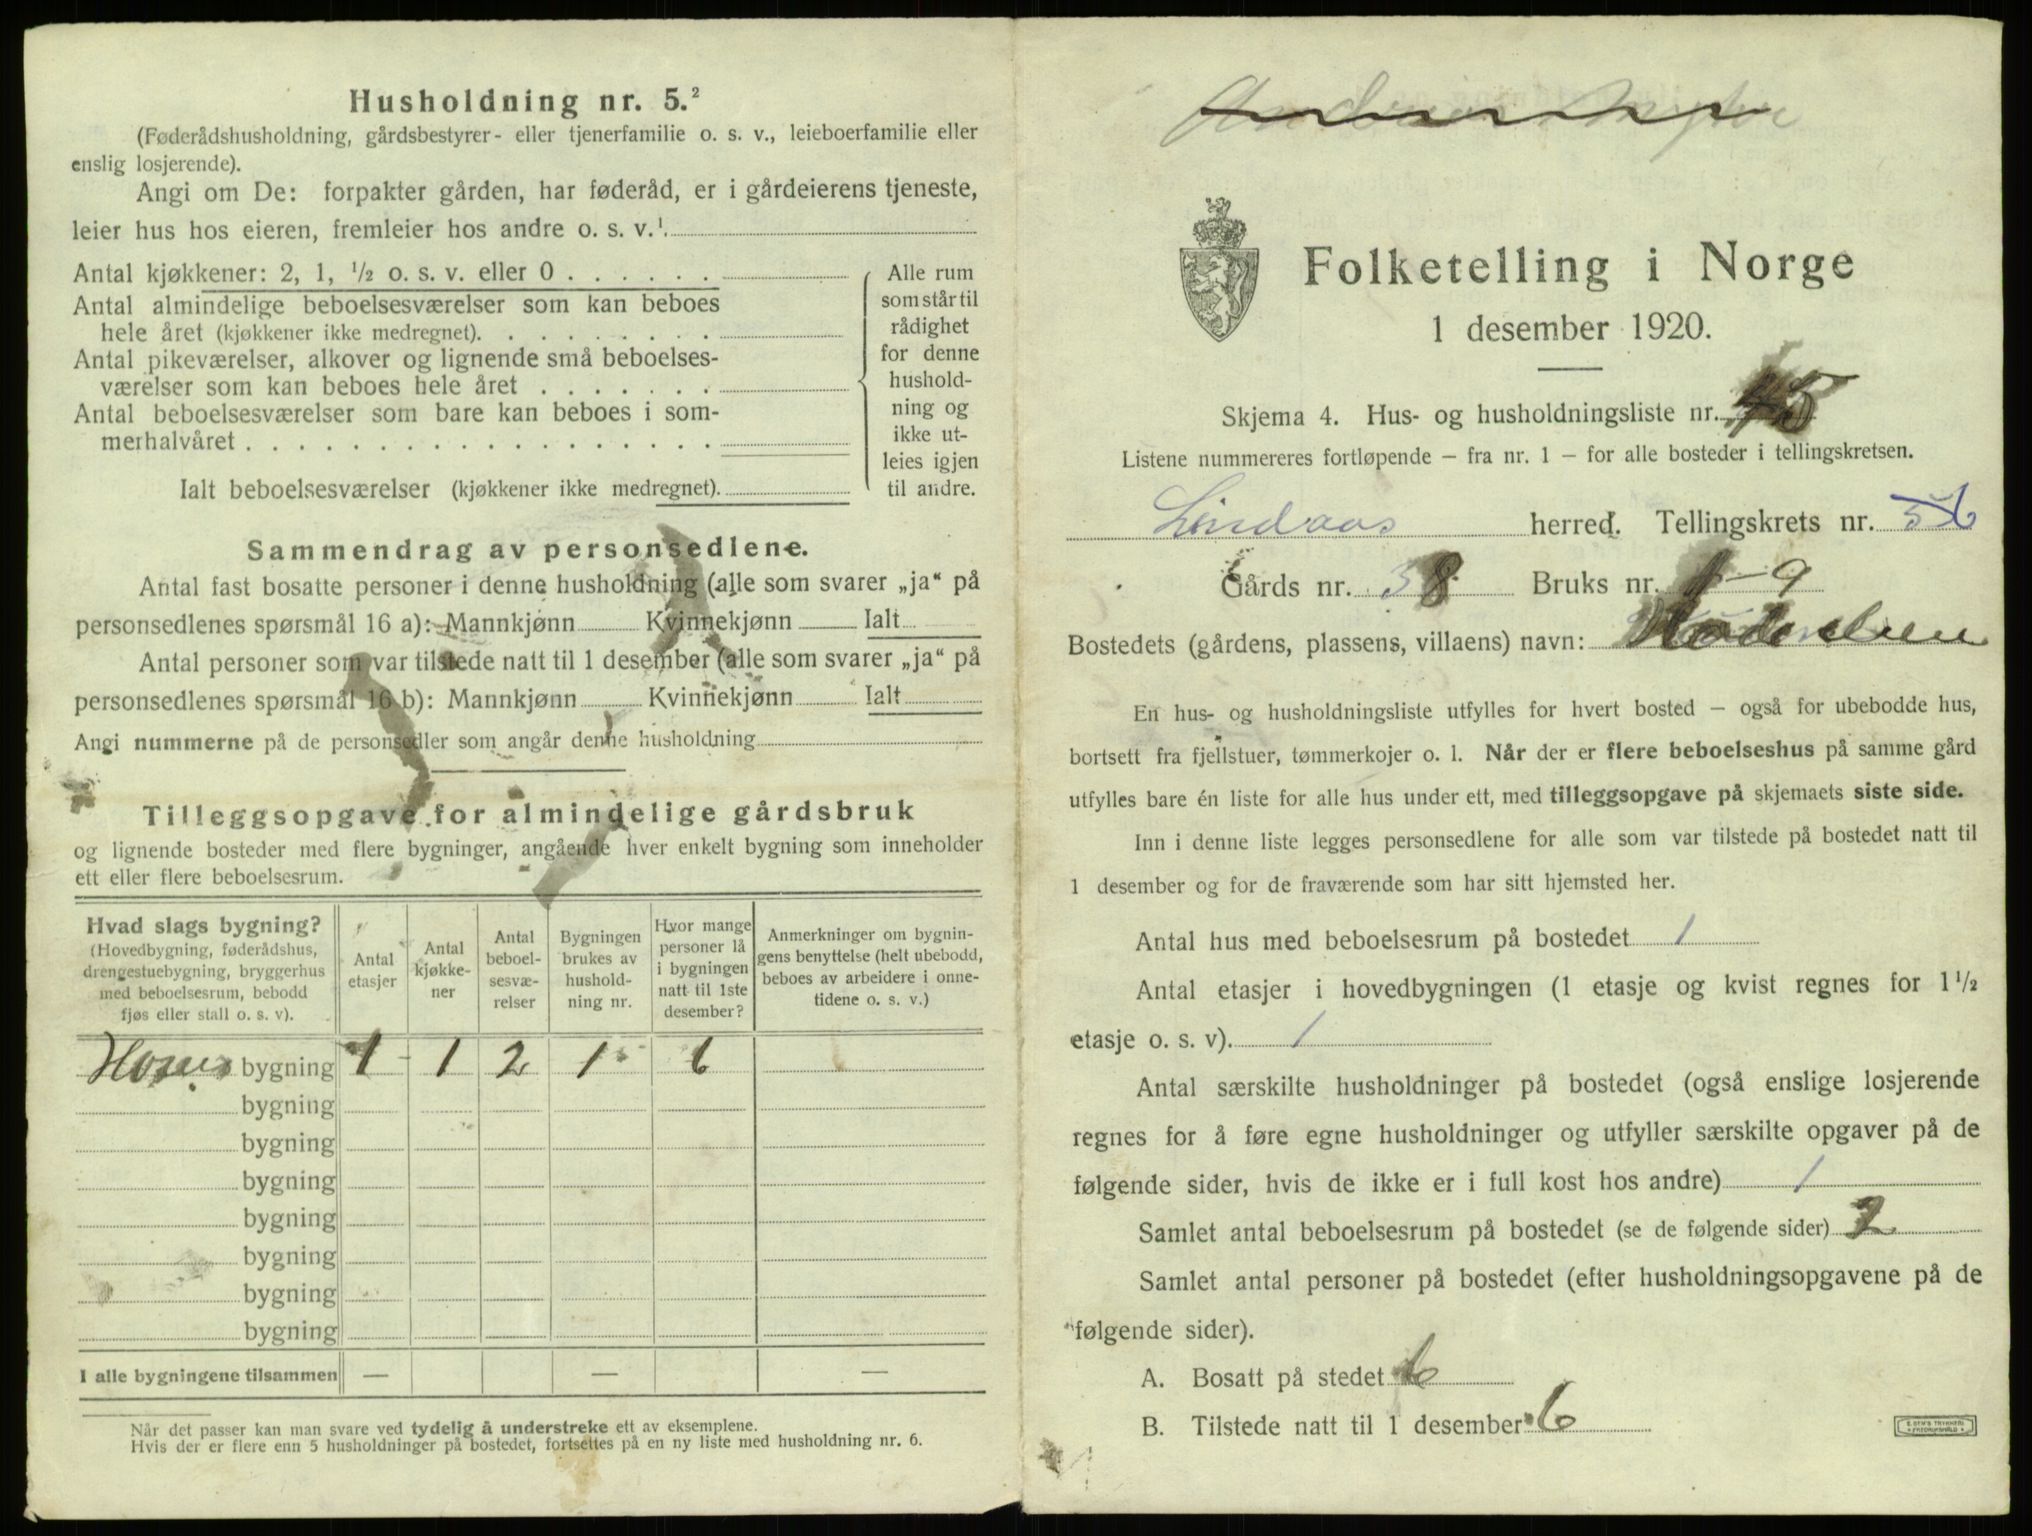 Husholdning nr. 5.²
(Føderådshusholdning, gårdsbestyrer- eller tjenerfamilie o. s. v., leieboerfamilie eller
enslig losjerende).
Angi om De: forpakter gården, har føderåd, er i gårdeierens tjeneste,
leier hus hos eieren, fremleier hos andre o. s. v.¹.
Antal kjøkkener: 2, 1, ½ o. s. v. eller 0 . . . . . .
Antal almindelige beboelsesværelser som kan beboes
hele året (kjøkkener ikke medregnet). . . . . . . . .
Antal pikeværelser, alkover og lignende små beboelses-
værelser som kan beboes hele året . . . . . . .
Antal beboelsesværelser som bare kan beboes i som-
merhalvåret . . . . . . . . . . . . . . . . . .
Ialt beboelsesværelser (kjøkkener ikke medregnet).
Alle rum
som står til
rådighet
for denne
hushold-
ning og
ikke ut-
leies igjen
til andre.
Sammendrag av personsedlene.
Antal fast bosatte personer i denne husholdning (alle som svarer „ja“ på
personsedlenes spørsmål 16 a): Mannkjønn Kvinnekjønn Ialt
Antal personer som var tilstede natt til 1 desember (alle som svarer „ja“ på
personsedlenes spørsmål 16 b): Mannkjønn Kvinnekjønn Ialt
Angi nummerne på de personsedler som angår denne husholdning
Tilleggsopgave for almindelige gårdsbruk
og lignende bosteder med flere bygninger, angående hver enkelt bygning som inneholder
ett eller flere beboelsesrum.
Hvad slags bygning?
(Hovedbygning, føderådshus,
drengestuebygning, bryggerhus
med beboelsesrum, bebodd
fjøs eller stall o. s. v).
Antal
etasjer
Antal
kjøkke-
ner
Antal
beboel-
sesvæ-
relser
Bygningen
brukes av
hushold-
ning nr.
Hvor mange
personer lå
i bygningen
natt til 1ste
desember?
Anmerkninger om bygnin-
gens benyttelse (helt ubebodd,
beboes av arbeidere i onne-
tidene o. s. v.)
bygning 1 1 2 1 6
bygning
bygning
bygning
bygning
bygning
bygning
bygning
I alle bygningene tilsammen — — —
Når det passer kan man svare ved tydelig å understreke ett av eksemplene.
Hvis der er flere enn 5 husholdninger på bostedet, fortsettes på en ny liste med husholdning nr. 6.
Folketelling i Norge
1 desember 1920.
Skjema 4. Hus- og husholdningsliste nr. 45
Listene nummereres fortløpende – fra nr. 1 – for alle bosteder i tellingskretsen.
Lindaas herred. Tellingskrets nr.
Gårds nr. 38 Bruks nr.
Bostedets (gårdens, plassens, villaens) navn:
En hus- og husholdningsliste utfylles for hvert bosted – også for ubebodde hus,
bortsett fra fjellstuer, tømmerkojer o. l. Når der er flere beboelseshus på samme gård
utfylles bare én liste for alle hus under ett, med tilleggsopgave på skjemaets siste side.
Inn i denne liste legges personsedlene for alle som var tilstede på bostedet natt til
1 desember og for de fraværende som har sitt hjemsted her.
Antal hus med beboelsesrum på bostedet 1
Antal etasjer i hovedbygningen (1 etasje og kvist regnes for 1½
etasje o. s. v). 1
Antal særskilte husholdninger på bostedet (også enslige losjerende
regnes for å føre egne husholdninger og utfyller særskilte opgaver på de
følgende sider, hvis de ikke er i full kost hos andre) 1
Samlet antal beboelsesrum på bostedet (se de følgende sider) 2
Samlet antal personer på bostedet (efter husholdningsopgavene på de
følgende sider).
A. Bosatt på stedet 6
B. Tilstede natt til 1 desember 6